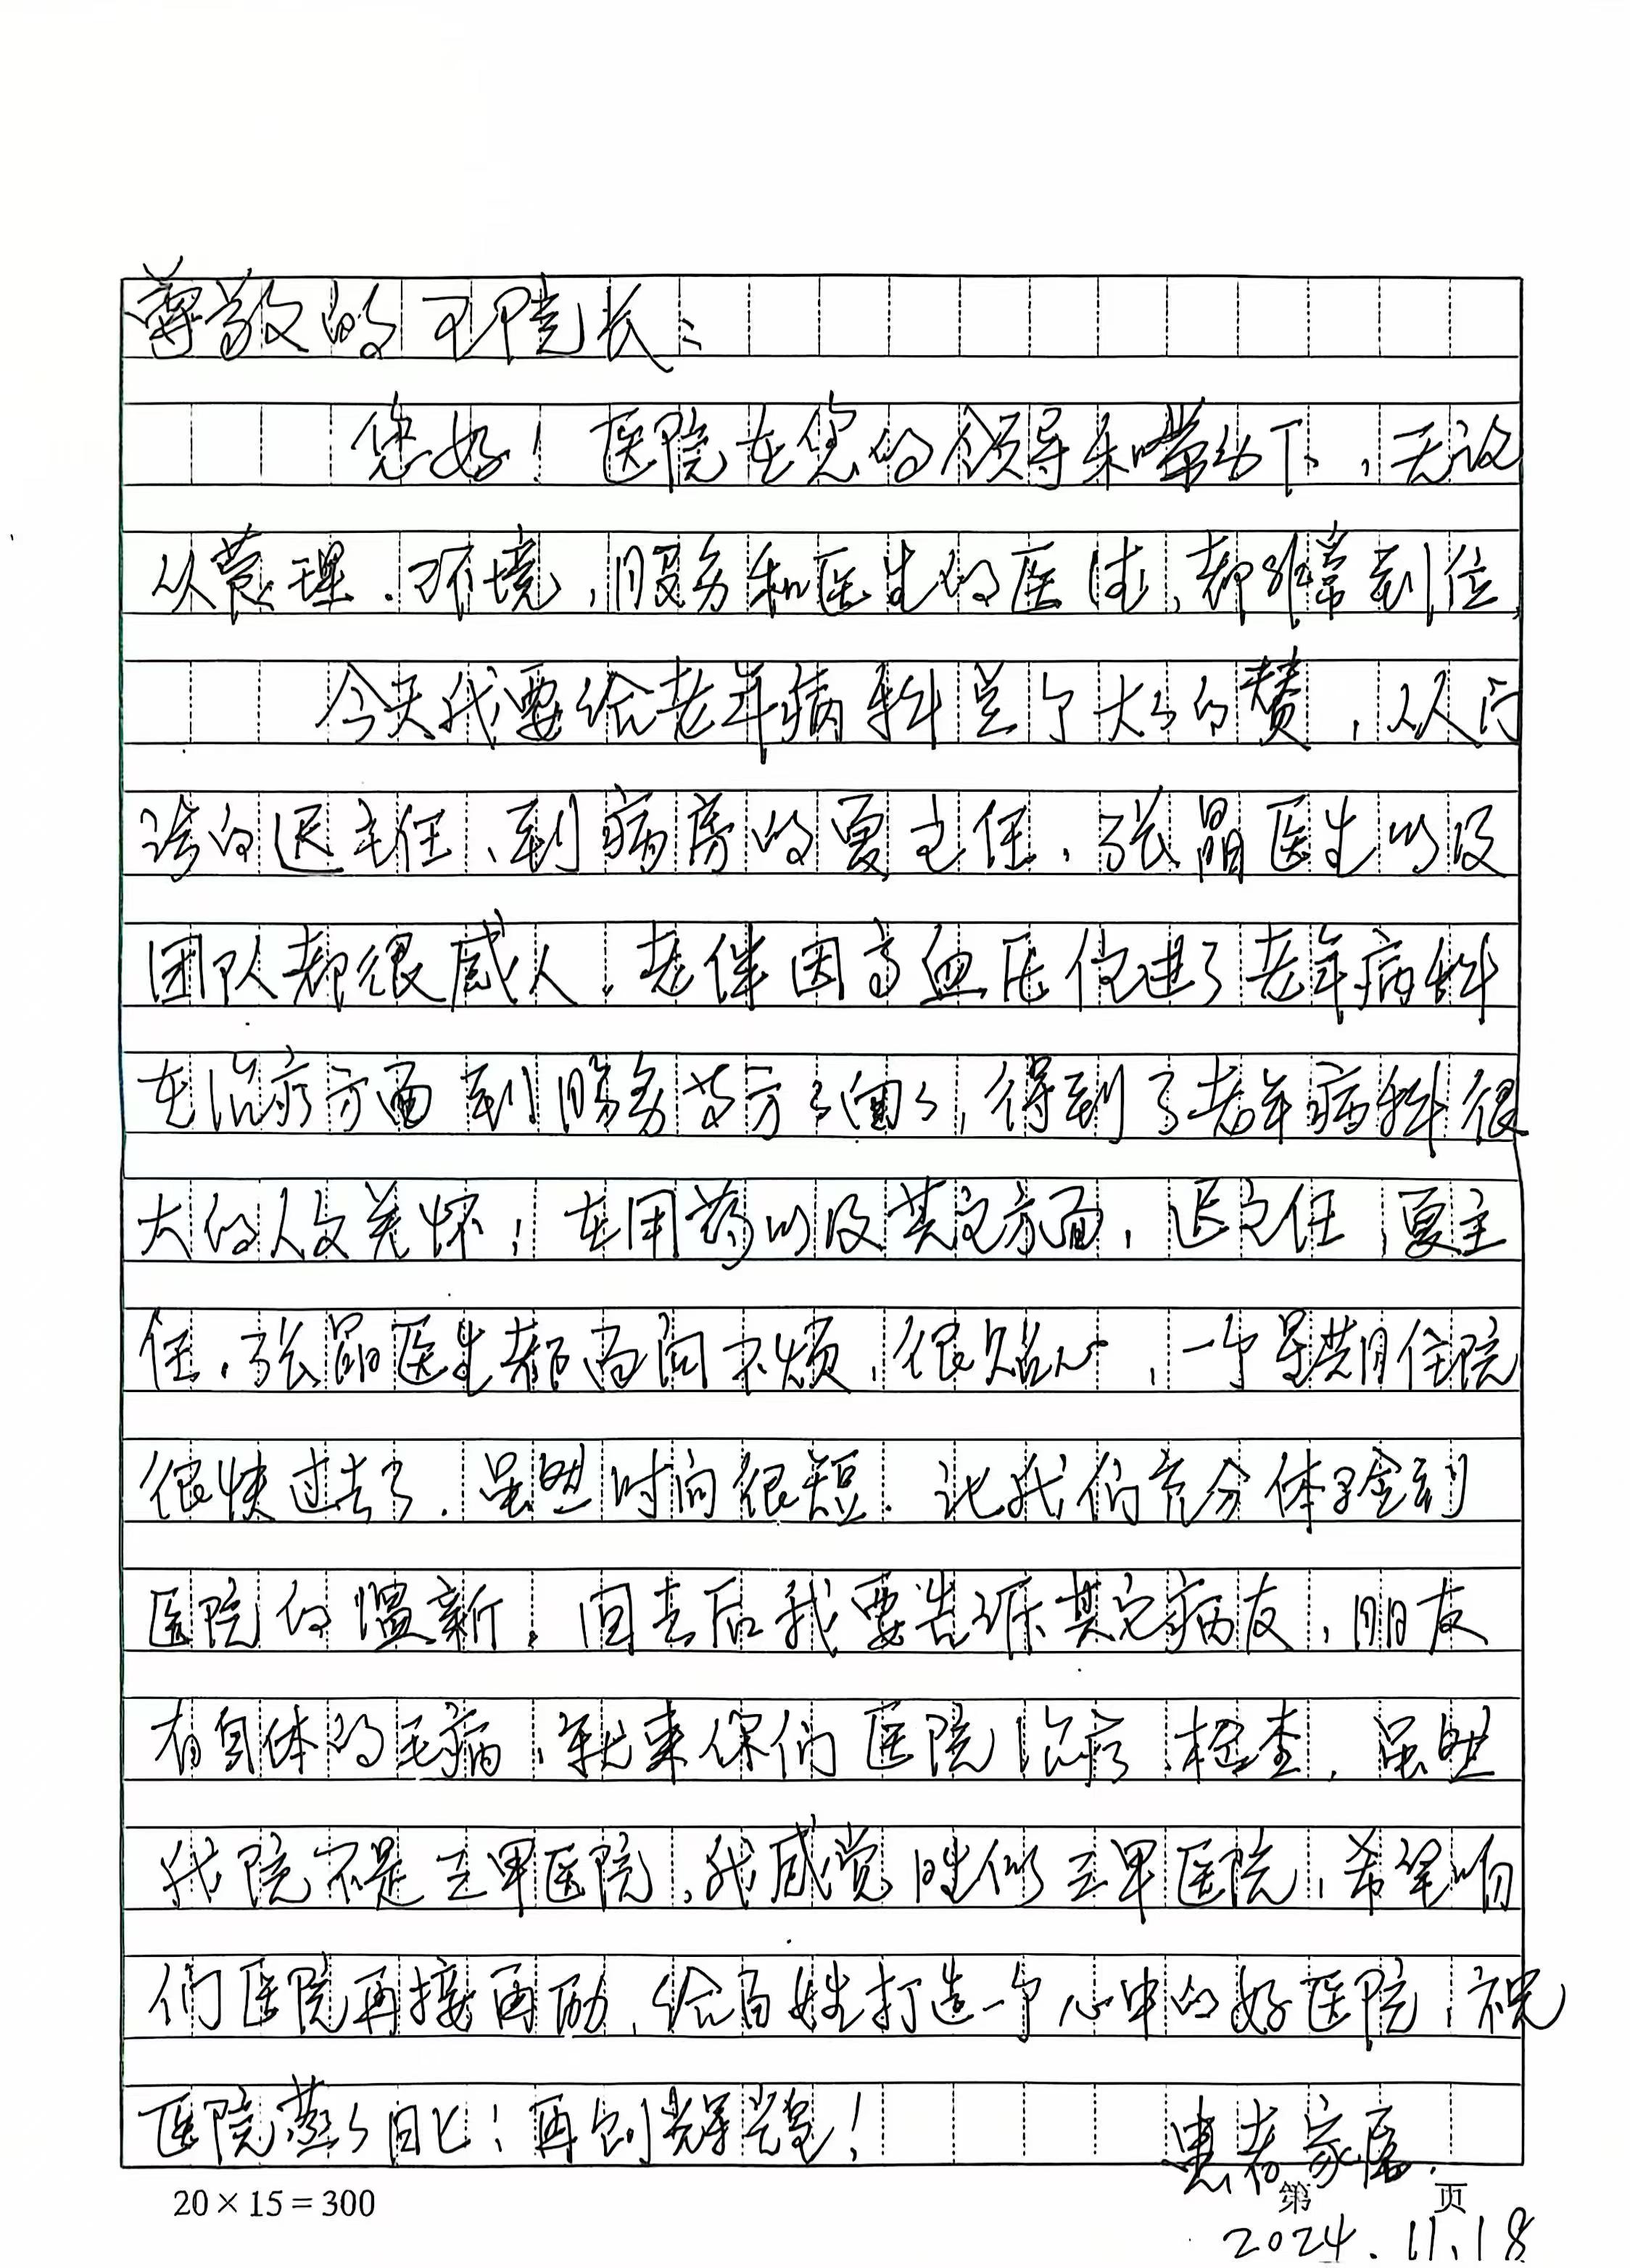 尊敬的王院长：
您好！医院在您的领导和带动下，无论
从管理．环境，服务和医生的医德，都非常到位，
今天我要给老年病科点个大大的赞，从门
诊的迟主任、到病房的夏主任．张晶医生以及
团队都很感人．老伴因高血压住进了老年病科
在治疗方面到服务等方方面面，得到了老年病科很
大的人文关怀；在用药以及其它方面，迟主任，夏主
任．张晶医生都不烦．很贴心，一个星期住院
很快过去了．虽然时间很短．让我们充分体验到
医院的温新．回去后我要告诉其它病友，朋友
有身体的毛病，就来你们医院治疗．检查．虽然
我院不是三甲医院，我感觉胜似三甲医院，希望咱
们医院再接再励．给百姓打造一个心中的好医院，祝
医院蒸蒸日上！再创辉煌！
患者家属．
20×15=300
第 页
2024.11.18